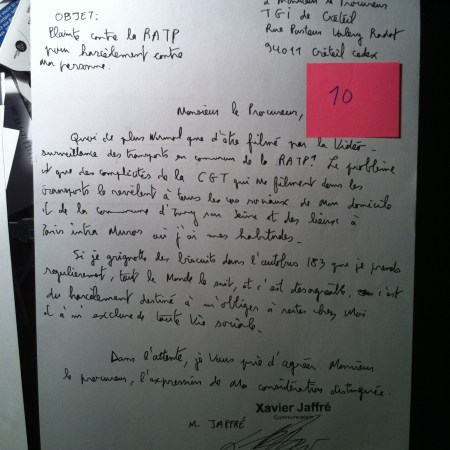 à Monsieur le Procureur
OBJET:
TGI de Créteil
Plainte contre la RATP
Rue Pasteur Valery Radot
pour harcèlement contre
94011 Créteil cedex
ma personne.
10
Monsieur le Procureur,
Quoi de plus normal que d'être filmé par la vidéo-
surveillance des transports en commun de la RATP? Le problème
est que des complicités de la CGT qui me filment dans les
transports le révèlent à tous les vos sociaux de mon domicile
et de la commune d'Ivry sur Seine et des lieux à
Paris intra muros où j'ai mes habitudes.
Si je grignotte des biscuits dans l'autobus 183 que je prends
régulièrement, tout le monde le sait, et c'est désagréable, c'est
du harcèlement destiné à m'obliger à rester chez moi
et à m'exclure de toute vie sociale.
Dans l'attente, je vous prie d'agréer Monsieur
le procureur, l'expression de ma considération distinguée.
Xavier Jaffré
Communication
M. JAFFRÉ